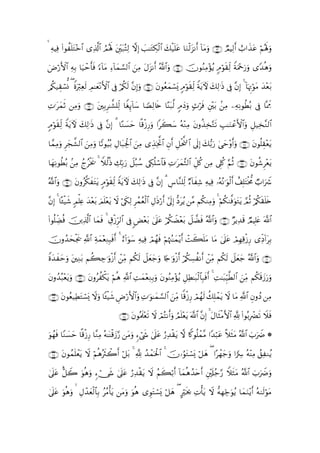 وَلَهُمْ عَذَابٌ أَلِيمٌ ﴿٦٣﴾ وَمَآ أَنزَلْنَا عَلَيْكَ ٱلْكِتَٰبَ إِلَّا لِتُبَيِّنَ لَهُمُ ٱلَّذِى ٱخْتَلَفُوا۟ فِيهِ ۙ
وَهُدًى وَرَحْمَةً لِّقَوْمٍ يُؤْمِنُونَ ﴿٦٤﴾ وَٱللَّهُ أَنزَلَ مِنَ ٱلسَّمَآءِ مَآءً فَأَحْيَا بِهِ ٱلْأَرْضَ
بَعْدَ مَوْتِهَآ ۚ إِنَّ فِى ذَٰلِكَ لَءَايَةً لِّقَوْمٍ يَسْمَعُونَ ﴿٦٥﴾ وَإِنَّ لَكُمْ فِى ٱلْأَنْعَٰمِ لَعِبْرَةً ۖ نُّسْقِيكُم
مِّمَّا فِى بُطُونِهِۦ مِنۢ بَيْنِ فَرْثٍ وَدَمٍ لَّبَنًا خَالِصًا سَآئِغًا لِّلشَّٰرِبِينَ ﴿٦٦﴾ وَمِن ثَمَرَٰتِ
ٱلنَّخِيلِ وَٱلْأَعْنَٰبِ تَتَّخِذُونَ مِنْهُ سَكَرًا وَرِزْقًا حَسَنًا ۗ إِنَّ فِى ذَٰلِكَ لَءَايَةً لِّقَوْمٍ
يَعْقِلُونَ ﴿٦٧﴾ وَأَوْحَىٰ رَبُّكَ إِلَى ٱلنَّحْلِ أَنِ ٱتَّخِذِى مِنَ ٱلْجِبَالِ بُيُوتًا وَمِنَ ٱلشَّجَرِ وَمِمَّا
يَعْرِشُونَ ﴿٦٨﴾ ثُمَّ كُلِى مِن كُلِّ ٱلثَّمَرَٰتِ فَٱسْلُكِى سُبُلَ رَبِّكِ ذُلُلًا ۚ يَخْرُجُ مِنۢ بُطُونِهَا
شَرَابٌ مُّخْتَلِفٌ أَلْوَٰنُهُۥ فِيهِ شِفَآءٌ لِّلنَّاسِ ۗ إِنَّ فِى ذَٰلِكَ لَءَايَةً لِّقَوْمٍ يَتَفَكَّرُونَ ﴿٦٩﴾ وَٱللَّهُ
خَلَقَكُمْ ثُمَّ يَتَوَفَّىٰكُمْ ۚ وَمِنكُم مَّن يُرَدُّ إِلَىٰٓ أَرْذَلِ ٱلْعُمُرِ لِكَىْ لَا يَعْلَمَ بَعْدَ عِلْمٍ شَيْـًٔا ۚ إِنَّ
ٱللَّهَ عَلِيمٌ قَدِيرٌ ﴿٧٠﴾ وَٱللَّهُ فَضَّلَ بَعْضَكُمْ عَلَىٰ بَعْضٍ فِى ٱلرِّزْقِ ۚ فَمَا ٱلَّذِينَ فُضِّلُوا۟
بِرَآدِّى رِزْقِهِمْ عَلَىٰ مَا مَلَكَتْ أَيْمَٰنُهُمْ فَهُمْ فِيهِ سَوَآءٌ ۚ أَفَبِنِعْمَةِ ٱللَّهِ يَجْحَدُونَ ﴿٧١﴾
وَٱللَّهُ جَعَلَ لَكُم مِّنْ أَنفُسِكُمْ أَزْوَٰجًا وَجَعَلَ لَكُم مِّنْ أَزْوَٰجِكُم بَنِينَ وَحَفَدَةً
وَرَزَقَكُم مِّنَ ٱلطَّيِّبَٰتِ ۚ أَفَبِٱلْبَٰطِلِ يُؤْمِنُونَ وَبِنِعْمَتِ ٱللَّهِ هُمْ يَكْفُرُونَ ﴿٧٢﴾ وَيَعْبُدُونَ
مِن دُونِ ٱللَّهِ مَا لَا يَمْلِكُ لَهُمْ رِزْقًا مِّنَ ٱلسَّمَٰوَٰتِ وَٱلْأَرْضِ شَيْـًٔا وَلَا يَسْتَطِيعُونَ ﴿٧٣﴾
فَلَا تَضْرِبُوا۟ لِلَّهِ ٱلْأَمْثَالَ ۚ إِنَّ ٱللَّهَ يَعْلَمُ وَأَنتُمْ لَا تَعْلَمُونَ ﴿٧٤﴾
۞ ضَرَبَ ٱللَّهُ مَثَلًا عَبْدًا مَّمْلُوكًا لَّا يَقْدِرُ عَلَىٰ شَىْءٍ وَمَن رَّزَقْنَٰهُ مِنَّا رِزْقًا حَسَنًا فَهُوَ
يُنفِقُ مِنْهُ سِرًّا وَجَهْرًا ۖ هَلْ يَسْتَوُۥنَ ۚ ٱلْحَمْدُ لِلَّهِ ۚ بَلْ أَكْثَرُهُمْ لَا يَعْلَمُونَ ﴿٧٥﴾
وَضَرَبَ ٱللَّهُ مَثَلًا رَّجُلَيْنِ أَحَدُهُمَآ أَبْكَمُ لَا يَقْدِرُ عَلَىٰ شَىْءٍ وَهُوَ كَلٌّ عَلَىٰ
مَوْلَىٰهُ أَيْنَمَا يُوَجِّههُّ لَا يَأْتِ بِخَيْرٍ ۖ هَلْ يَسْتَوِى هُوَ وَمَن يَأْمُرُ بِٱلْعَدْلِ ۙ وَهُوَ عَلَىٰ